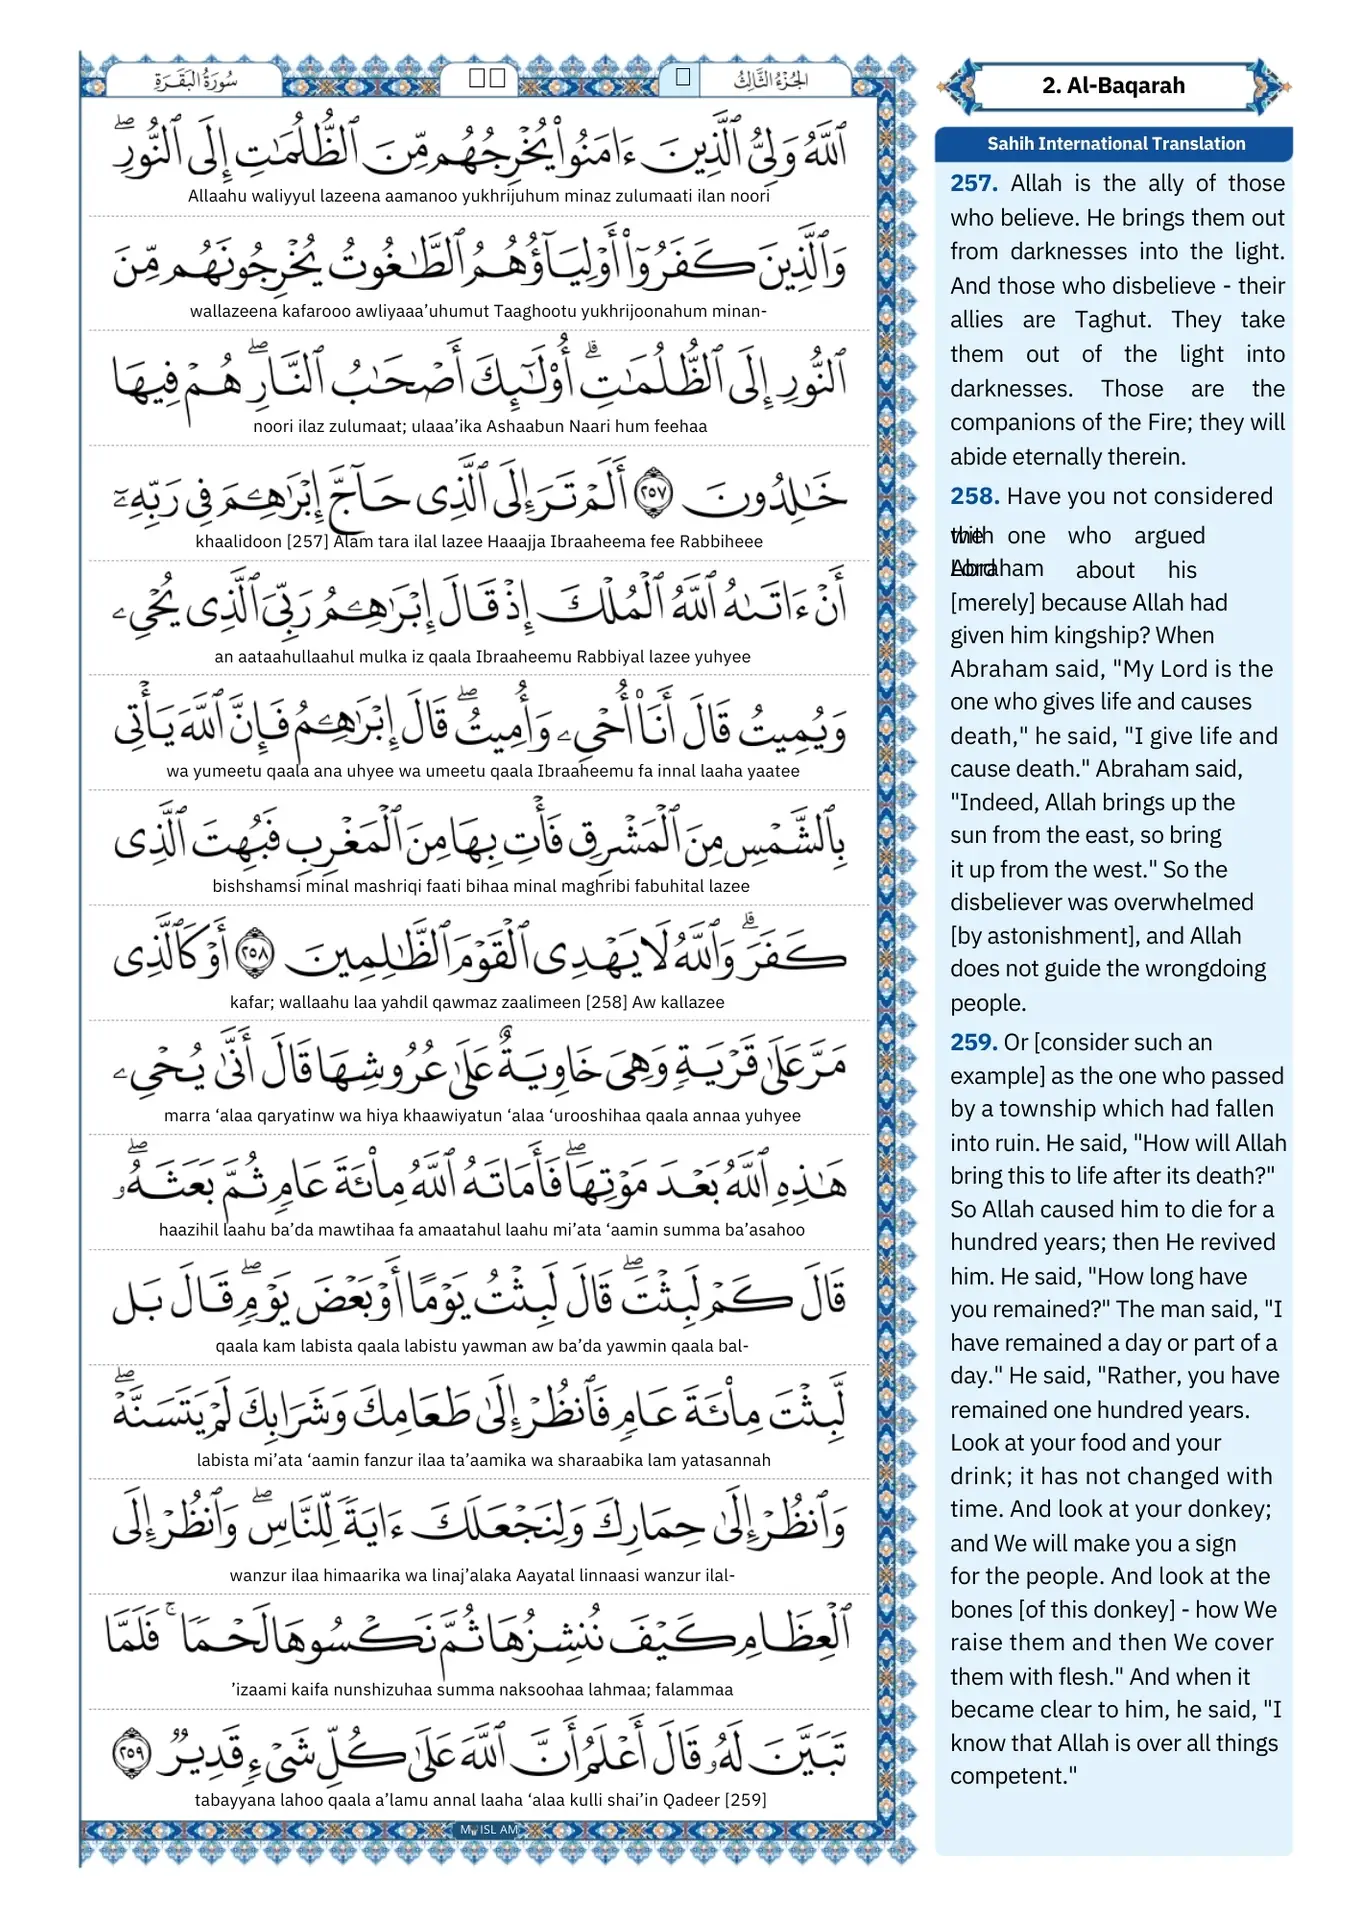 سُورَةُ البَقَرَةِ
الجُزْءُ الثَّالِثُ
ٱللَّهُ وَلِىُّ ٱلَّذِينَ ءَامَنُوا۟ يُخْرِجُهُم مِّنَ ٱلظُّلُمَـٰتِ إِلَى ٱلنُّورِ ۖ
Allaahu waliyyul lazeena aamanoo yukhrijuhum minaz zulumaati ilan noori
وَٱلَّذِينَ كَفَرُوٓا۟ أَوْلِيَآؤُهُمُ ٱلطَّـٰغُوتُ يُخْرِجُونَهُم مِّنَ
wallazeena kafarooo awliyaaa’uhumut Taaghootu yukhrijoonahum minan-
ٱلنُّورِ إِلَى ٱلظُّلُمَـٰتِ ۗ أُو۟لَـٰٓئِكَ أَصْحَـٰبُ ٱلنَّارِ ۖ هُمْ فِيهَا
noori ilaz zulumaat; ulaaa’ika Ashaabun Naari hum feehaa
خَـٰلِدُونَ ٢٥٧ أَلَمْ تَرَ إِلَى ٱلَّذِى حَآجَّ إِبْرَٰهِـۧمَ فِى رَبِّهِۦٓ
khaalidoon [257] Alam tara ilal lazee Haaajja Ibraaheema fee Rabbiheee
أَنْ ءَاتَىٰهُ ٱللَّهُ ٱلْمُلْكَ إِذْ قَالَ إِبْرَٰهِـۧمُ رَبِّىَ ٱلَّذِى يُحْىِۦ
an aataahullaahul mulka iz qaala Ibraaheemu Rabbiyal lazee yuhyee
وَيُمِيتُ قَالَ أَنَا۠ أُحْىِۦ وَأُمِيتُ ۖ قَالَ إِبْرَٰهِـۧمُ فَإِنَّ ٱللَّهَ يَأْتِى
wa yumeetu qaala ana uhyee wa umeetu qaala Ibraaheemu fa innal laaha yaatee
بِٱلشَّمْسِ مِنَ ٱلْمَشْرِقِ فَأْتِ بِهَا مِنَ ٱلْمَغْرِبِ فَبُهِتَ ٱلَّذِى
bishshamsi minal mashriqi faati bihaa minal maghribi fabuhital lazee
كَفَرَ ۗ وَٱللَّهُ لَا يَهْدِى ٱلْقَوْمَ ٱلظَّـٰلِمِينَ ٢٥٨ أَوْ كَٱلَّذِى
kafar; wallaahu laa yahdil qawmaz zaalimeen [258] Aw kallazee
مَرَّ عَلَىٰ قَرْيَةٍ وَهِىَ خَاوِيَةٌ عَلَىٰ عُرُوشِهَا قَالَ أَنَّىٰ يُحْىِۦ
marra ‘alaa qaryatinw wa hiya khaawiyatun ‘alaa ‘urooshihaa qaala annaa yuhyee
هَـٰذِهِ ٱللَّهُ بَعْدَ مَوْتِهَا ۖ فَأَمَاتَهُ ٱللَّهُ مِا۟ئَةَ عَامٍ ثُمَّ بَعَثَهُۥ ۖ
haazihil laahu ba’da mawtihaa fa amaatahul laahu mi’ata ‘aamin summa ba’asahoo
قَالَ كَمْ لَبِثْتَ ۖ قَالَ لَبِثْتُ يَوْمًا أَوْ بَعْضَ يَوْمٍ ۖ قَالَ بَل
qaala kam labista qaala labistu yawman aw ba’da yawmin qaala bal-
لَّبِثْتَ مِا۟ئَةَ عَامٍ فَٱنظُرْ إِلَىٰ طَعَامِكَ وَشَرَابِكَ لَمْ يَتَسَنَّهْ ۖ
labista mi’ata ‘aamin fanzur ilaa ta’aamika wa sharaabika lam yatasannah
وَٱنظُرْ إِلَىٰ حِمَارِكَ وَلِنَجْعَلَكَ ءَايَةً لِّلنَّاسِ ۖ وَٱنظُرْ إِلَى
wanzur ilaa himaarika wa linaj’alaka Aayatal linnaasi wanzur ilal-
ٱلْعِظَامِ كَيْفَ نُنشِزُهَا ثُمَّ نَكْسُوهَا لَحْمًا ۚ فَلَمَّا
’izaami kaifa nunshizuhaa summa naksoohaa lahmaa; falammaa
تَبَيَّنَ لَهُۥ قَالَ أَعْلَمُ أَنَّ ٱللَّهَ عَلَىٰ كُلِّ شَىْءٍ قَدِيرٌ ٢٥٩
tabayyana lahoo qaala a’lamu annal laaha ‘alaa kulli shai’in Qadeer [259]
2. Al-Baqarah
Sahih International Translation
257. Allah is the ally of those
who believe. He brings them out
from darknesses into the light.
And those who disbelieve - their
allies are Taghut. They take
them out of the light into
darknesses. Those are the
companions of the Fire; they will
abide eternally therein.
258. Have you not considered
the one who argued with
Abraham about his Lord
[merely] because Allah had
given him kingship? When
Abraham said, "My Lord is the
one who gives life and causes
death," he said, "I give life and
cause death." Abraham said,
"Indeed, Allah brings up the
sun from the east, so bring
it up from the west." So the
disbeliever was overwhelmed
[by astonishment], and Allah
does not guide the wrongdoing
people.
259. Or [consider such an
example] as the one who passed
by a township which had fallen
into ruin. He said, "How will Allah
bring this to life after its death?"
So Allah caused him to die for a
hundred years; then He revived
him. He said, "How long have
you remained?" The man said, "I
have remained a day or part of a
day." He said, "Rather, you have
remained one hundred years.
Look at your food and your
drink; it has not changed with
time. And look at your donkey;
and We will make you a sign
for the people. And look at the
bones [of this donkey] - how We
raise them and then We cover
them with flesh." And when it
became clear to him, he said, "I
know that Allah is over all things
competent."